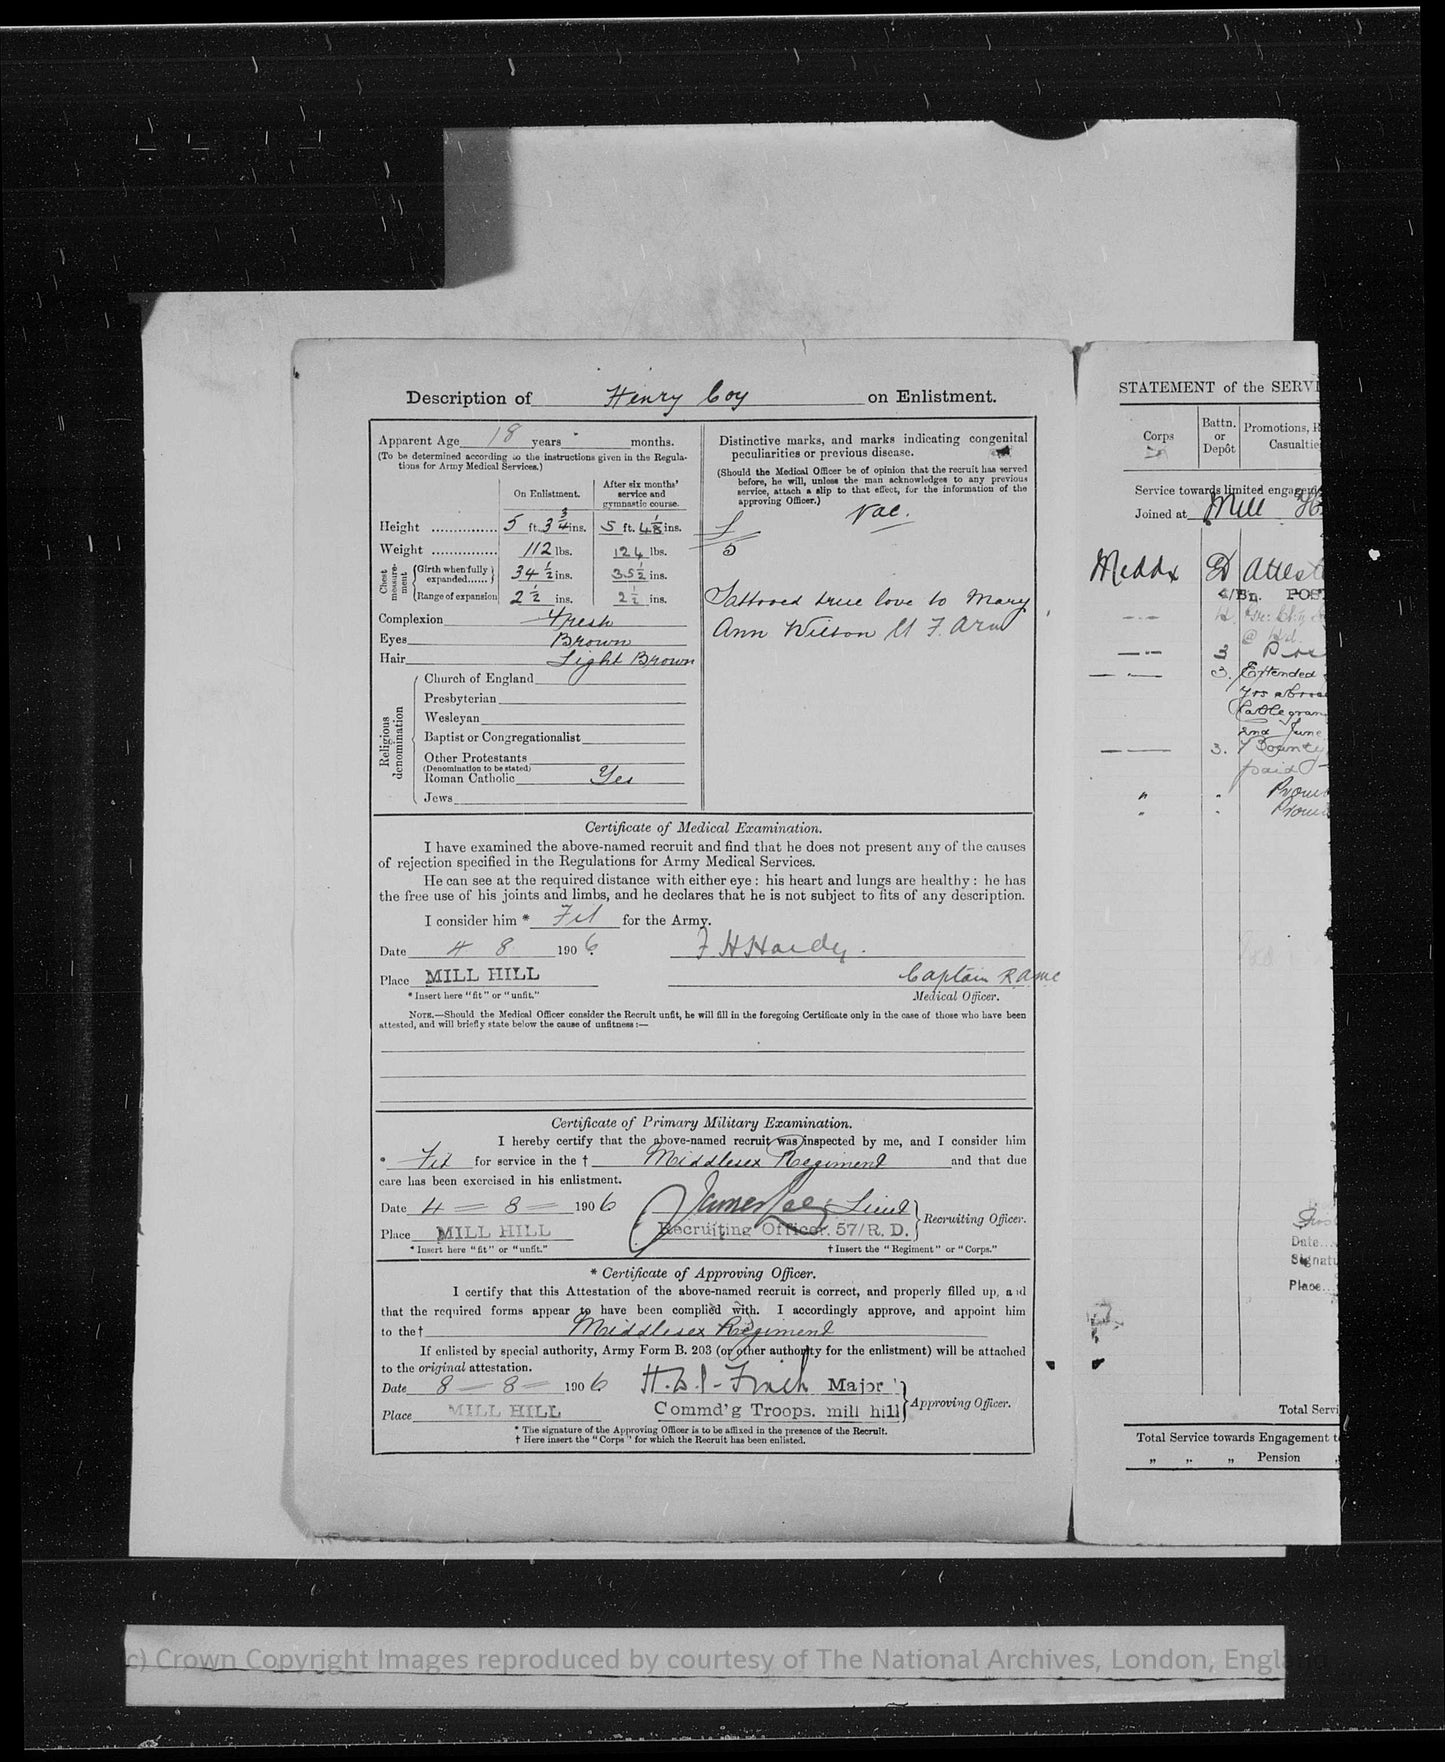 Description of Henry Coy on Enlistment.
Apparent Age 18 years months.
(To be determined according to the instructions given in the Regula-
tions for Army Medical Services.)
On Enlistment.
After six months'
service and
gymnastic course.
Height 5 ft. 3 3/4 ins. 5 ft. 4 1/8 ins.
Weight 112 lbs. 124 lbs.
Chest measure-ment
Girth when fully expanded 34 1/2 ins. 35 1/2 ins.
Range of expansion 2 1/2 ins. 2 1/2 ins.
Complexion Fresh
Eyes Brown
Hair Light Brown
Religious denomination
Church of England
Presbyterian
Wesleyan
Baptist or Congregationalist
Other Protestants
(Denomination to be stated)
Roman Catholic Yes
Jews
Distinctive marks, and marks indicating congenital
peculiarities or previous disease.
(Should the Medical Officer be of opinion that the recruit has served
before, he will, unless the man acknowledges to any previous
service, attach a slip to that effect, for the information of the
approving Officer.)
Vac.
5
Tattooed true love to Mary
Ann Wilson U F. Arm
Certificate of Medical Examination.
I have examined the above-named recruit and find that he does not present any of the causes
of rejection specified in the Regulations for Army Medical Services.
He can see at the required distance with either eye: his heart and lungs are healthy: he has
the free use of his joints and limbs, and he declares that he is not subject to fits of any description.
I consider him * Fit for the Army.
Date 4 8 1906 F H Hardy.
Place MILL HILL Captain R.A.M.C
* Insert here "fit" or "unfit." Medical Officer.
NOTE.—Should the Medical Officer consider the Recruit unfit, he will fill in the foregoing Certificate only in the case of those who have been
attested, and will briefly state below the cause of unfitness:—
Certificate of Primary Military Examination.
I hereby certify that the above-named recruit was inspected by me, and I consider him
* Fit for service in the † Middlesex Regiment and that due
care has been exercised in his enlistment.
Date 4 = 8 = 1906 James Lee Lieut
Place MILL HILL Recruiting Officer. 57/R. D. Recruiting Officer.
* Insert here "fit" or "unfit." † Insert the "Regiment" or "Corps."
* Certificate of Approving Officer.
I certify that this Attestation of the above-named recruit is correct, and properly filled up, and
that the required forms appear to have been complied with. I accordingly approve, and appoint him
to the † Middlesex Regiment
If enlisted by special authority, Army Form B. 203 (or other authority for the enlistment) will be attached
to the original attestation.
Date 8 = 8 = 1906 Finch Major
Place MILL HILL Commd'g Troops. mill hill Approving Officer.
* The signature of the Approving Officer is to be affixed in the presence of the Recruit.
† Here insert the "Corps" for which the Recruit has been enlisted.
STATEMENT of the SERVI
Corps
Battn. or Depôt
Promotions, R
Casualtie
Service towards limited engagem
Joined at Mill H
Middx D Attest
4/Bn. POST
3 Pos
3. Extended
yrs abroa
Cablegram
2nd June
3. Bounty
paid
" . Prom
. . Prom
Date
Signatu
Place
Total Servi
Total Service towards Engagement t
" " " Pension "
(c) Crown Copyright Images reproduced by courtesy of The National Archives, London, England